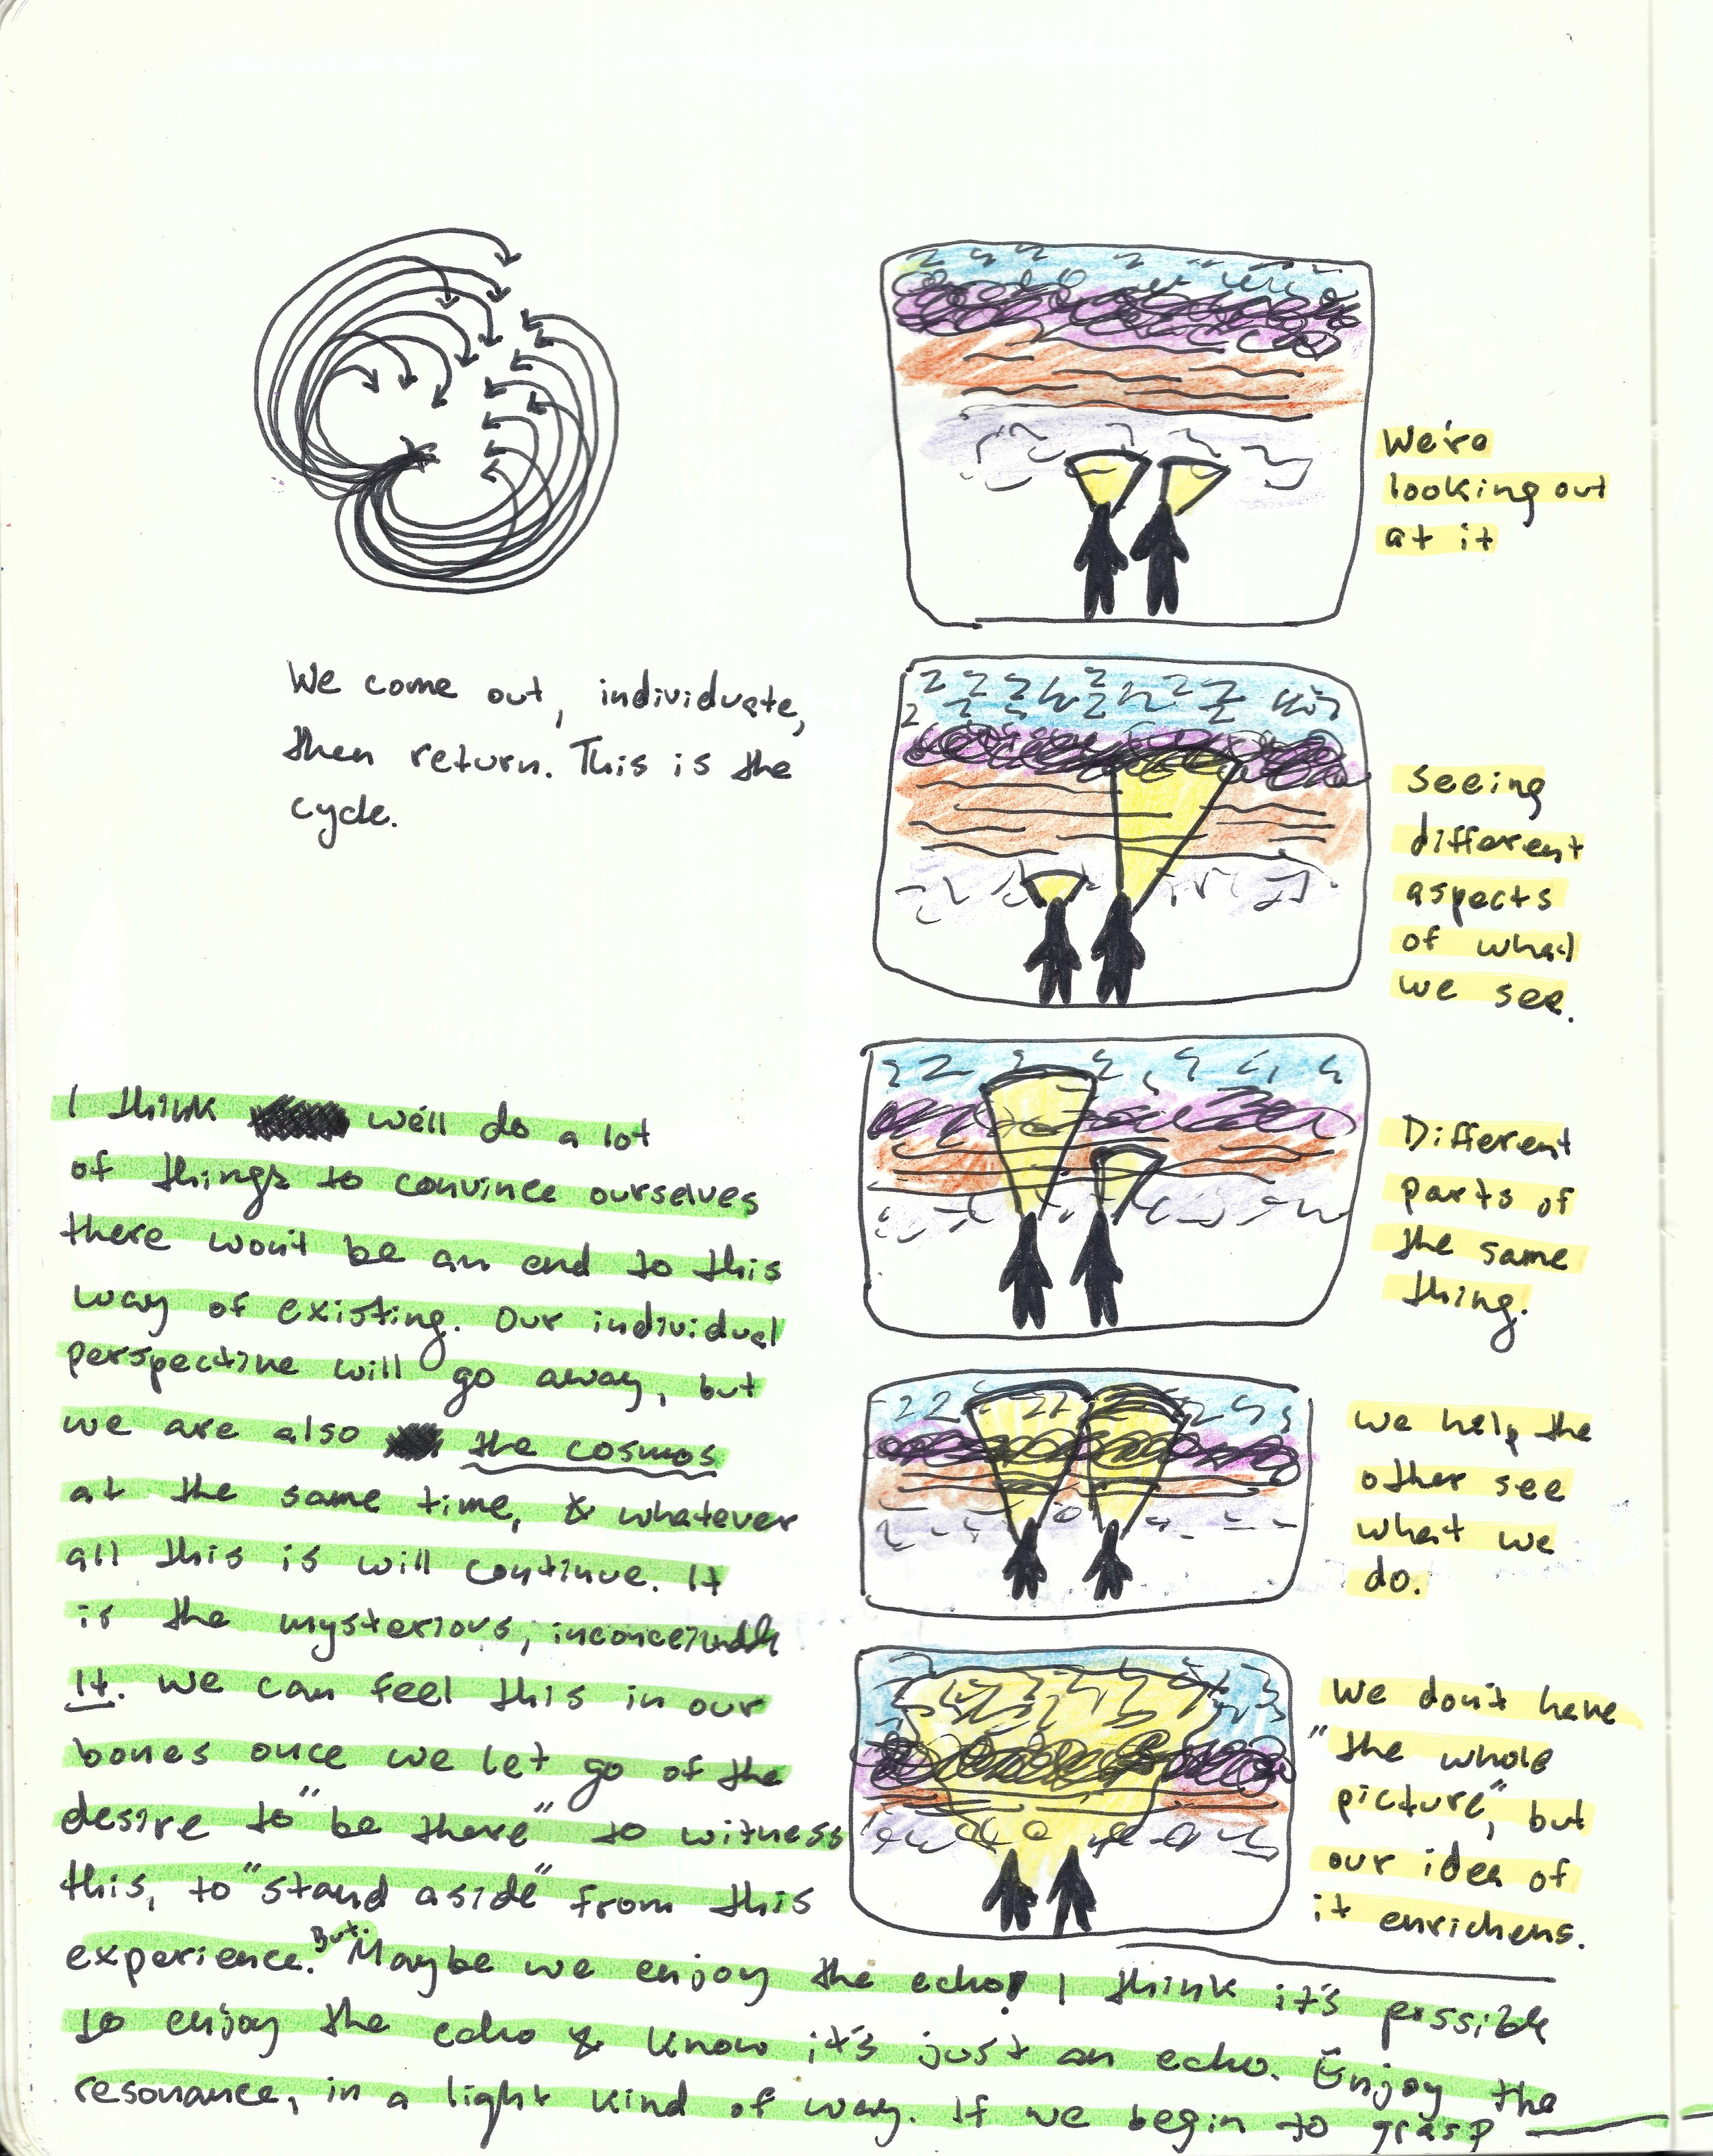 We come out, individuate,
then return. This is the
cycle.
We're
looking out
at it
Seeing
different
aspects
of what
we see.
Different
parts of
the same
thing.
We help the
other see
what we
do.
We don't have
"the whole
picture", but
our idea of
it enrichens.
I think we'll do a lot
of things to convince ourselves
there won't be an end to this
way of existing. Our individual
perspective will go away, but
we are also the cosmos
at the same time, & whatever
all this is will continue. It
is the mysterious, inconceivable
It. We can feel this in our
bones once we let go of the
desire to "be there" to witness
this, to "stand aside" from this
experience. But Maybe we enjoy the echo! I think it's possible
to enjoy the echo & know it's just an echo. Enjoy the
resonance, in a light kind of way. If we begin to grasp